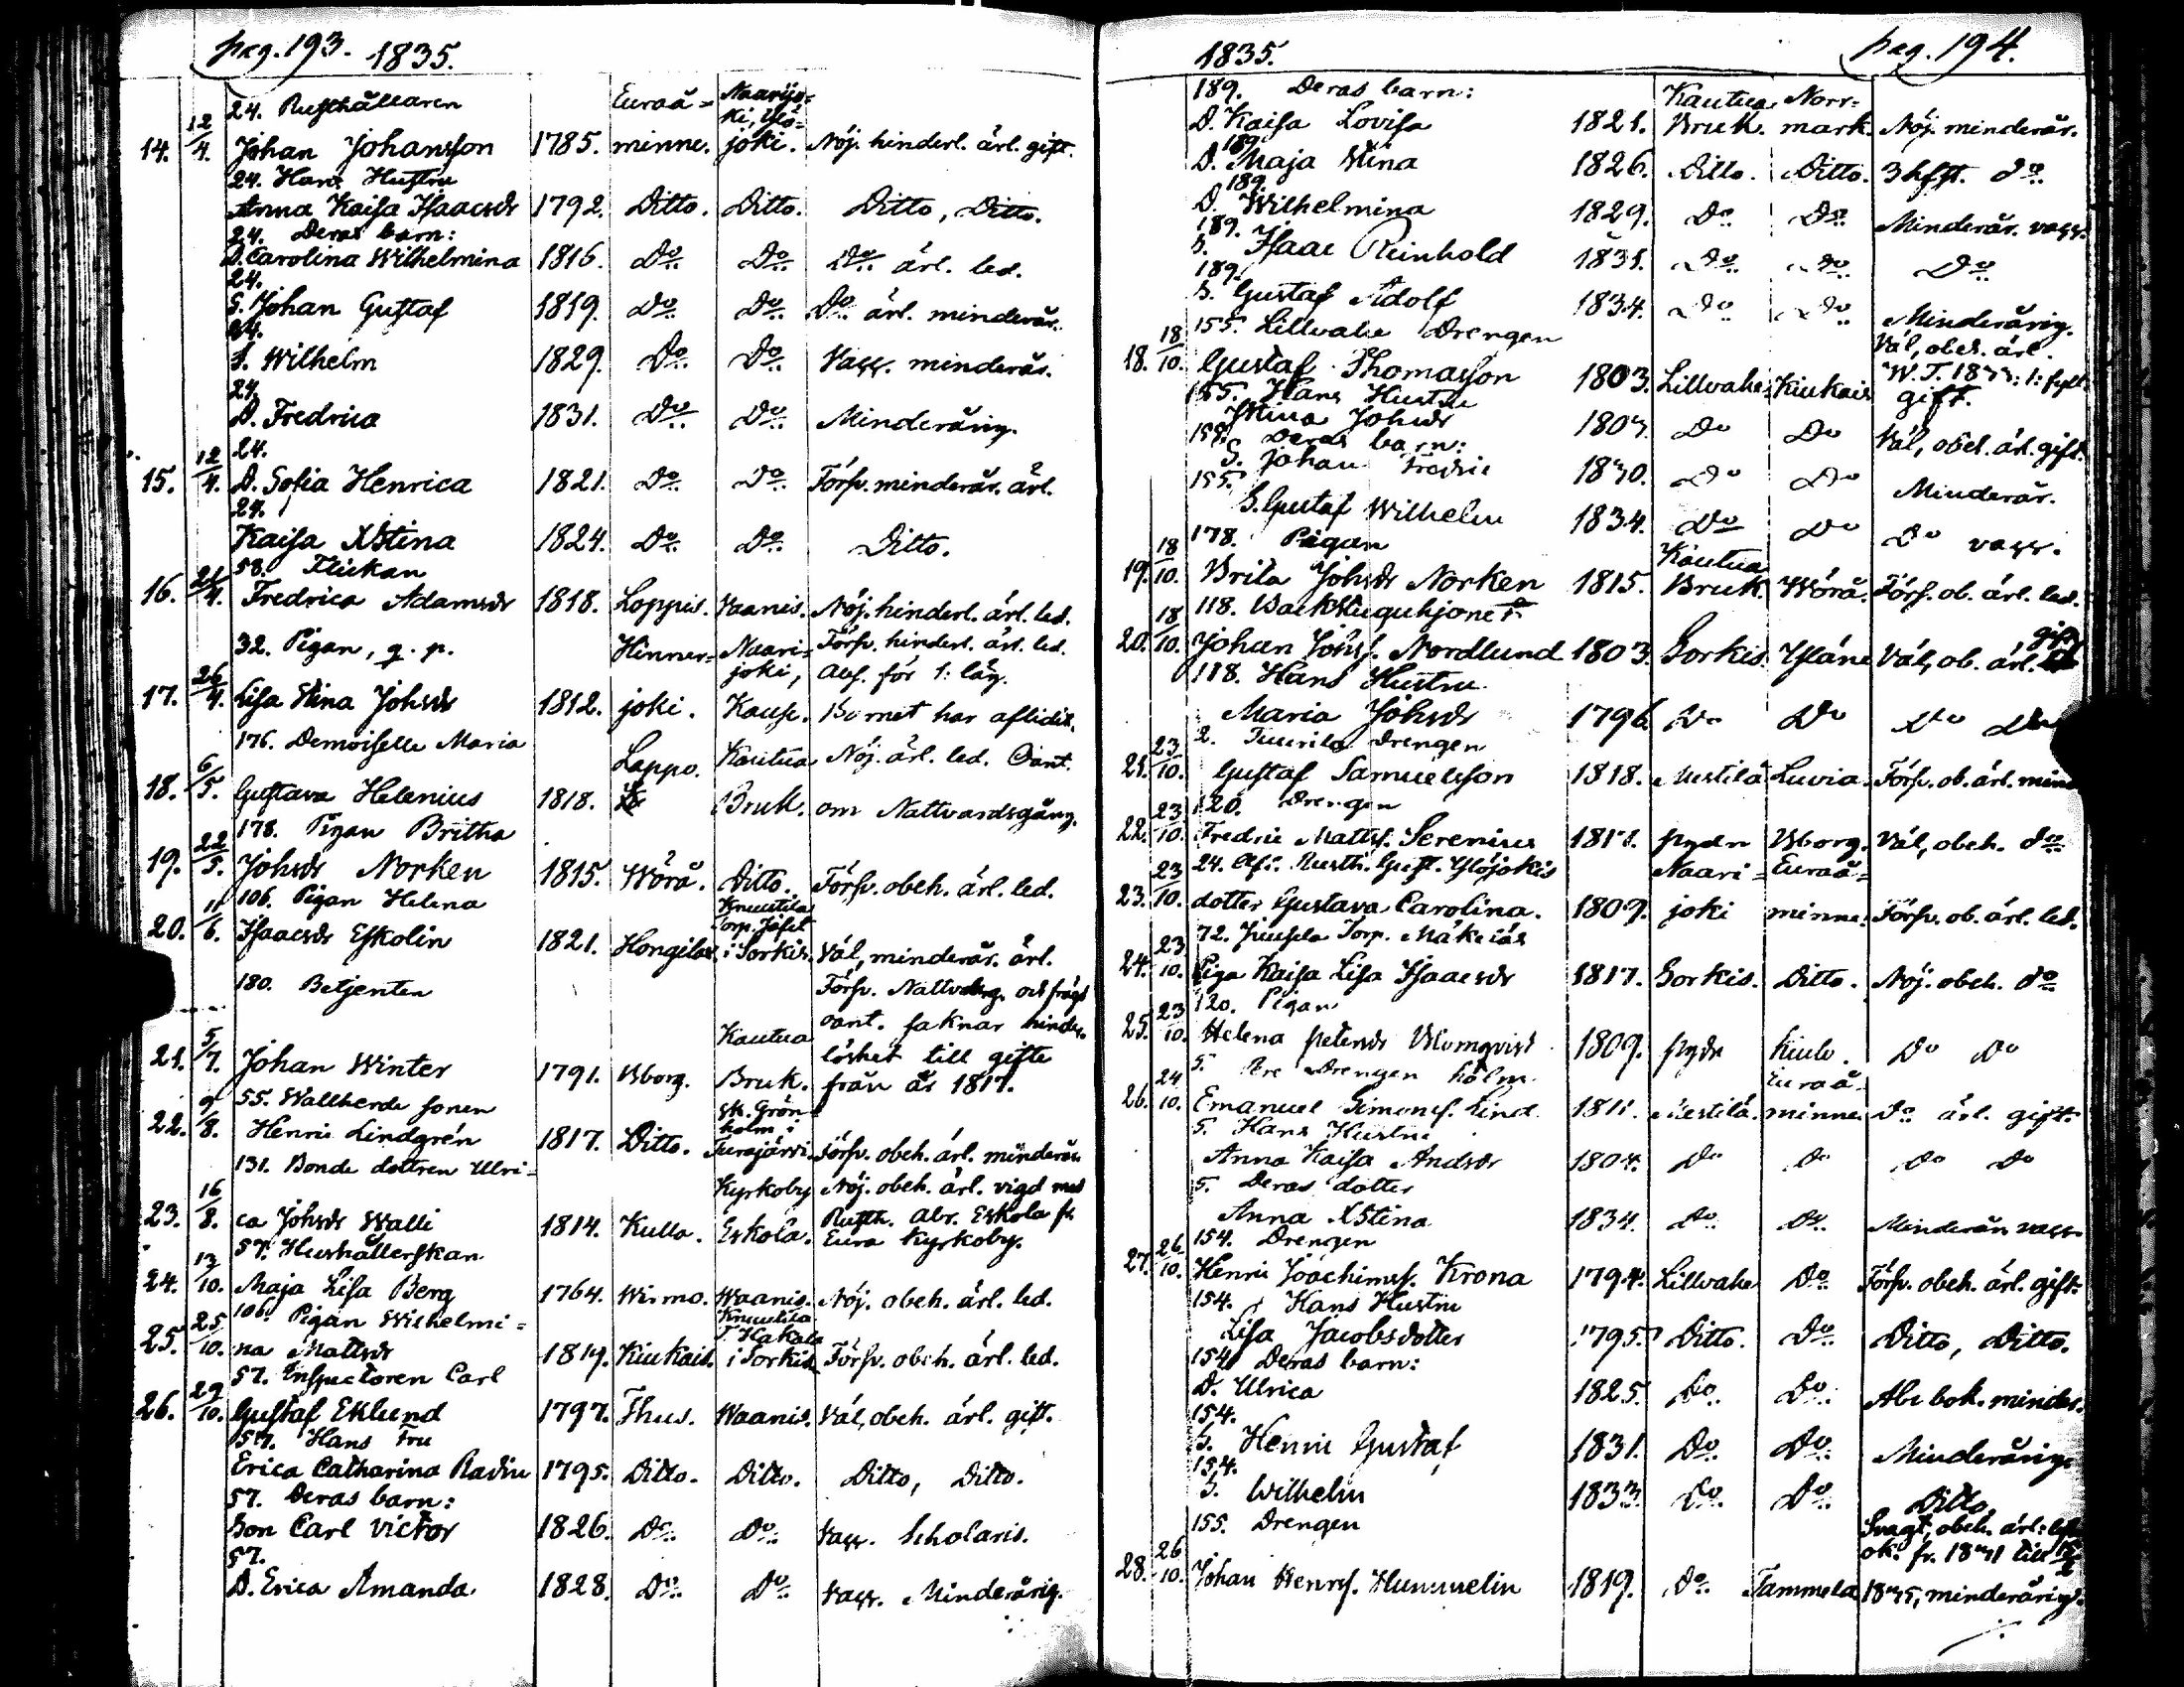 pag. 193. 1835.
24. Rusthållaren Euraå= Naarijo=
ki, Ylö=
14. 12/4. Johan Johansson 1785. minne. joki. Nöj. hinderl. ärl. gift.
24. Hans Hustru
Anna Kaisa Isaacsdr 1792. Ditto. Ditto. Ditto, Ditto.
24. Deras barn:
D. Carolina Wilhelmina 1816. Do Do Do ärl. led.
24.
S. Johan Gustaf 1819. Do Do Do ärl. minderår.
24.
S. Wilhelm 1829. Do Do Vacc. minderår.
24.
D. Fredrica 1831. Do Do Minderårig.
24.
15. 12/4. D. Sofia Henrica 1821. Do Do Försv. minderår. ärl.
24.
Kaisa XStina 1824. Do Do Ditto.
58. Flickan
16. 21/4. Fredrica Adamsdr 1818. Loppis. Vaanis. Nöj. hinderl. ärl. led.
32. Pigan, q. p. Hinner= Naari= Försv. hinderl. ärl. led.
joki, Abs. för 1: läg.
17. 26/4. Lisa Stina Johsdr 1812. joki. Kaup. Barnet har aflidit.
176. Demoiselle Maria Lappo. Kautua Nöj. ärl. led. Oant.
18. 6/5. Gustava Helenius 1818. Bruk. om Nattvardsgång.
178. Pigan Britha
19. 22/5. Johsdr Norken 1815. Wörå. Ditto. Försv. obeh. ärl. led.
106. Pigan Helena Knuutila
Torp. Jafet
20. 11/6. Isaacsdr Eskolin 1821. Hongilax. i Sorkis. Väl, minderår. ärl.
180. Betjenten Försv. Nattvardsg. och frägd
Kautua oant. saknar hinders=
löshet till gifte
21. 5/7. Johan Winter 1791. Bborg. Bruk. från år 1817.
55. Wallherde sonen sk. Grön=
holm i
22. 9/8. Henric Lindgrén 1817. Ditto. Eurajärvi. Försv. obeh. ärl. minderår.
131. Bonde dottren Ulri= Kyrkoby Nöj. obeh. ärl. vigd med
Rusth. Abr. Eskola fr.
23. 16/8. ca Johsdr Walli 1814. Kulla. Eskola. Eura Kyrkoby.
57. Hushållerskan
24. 13/10. Maja Lisa Berg 1764. Wirmo. Waanis. Nöj. obeh. ärl. led.
106. Pigan Wilhelmi= Knuutila
T. Hakala
25. 25/10. na Mattsdr 1819. Kiukais. i Sorkis. Försv. obeh. ärl. led.
57. Inspectoren Carl
26. 29/10. Gustaf Eklund 1797. Thus. Waanis. Väl, obeh. ärl. gift.
57. Hans Fru
Erica Catharina Ravin 1795. Ditto. Ditto. Ditto, Ditto.
57. Deras barn:
Son Carl Victor 1826. Do Do Vacc. Scholaris.
57.
D. Erica Amanda 1828. Do Do Vacc. Minderårig.
1835. pag. 194.
189. Deras barn: Kautua Norr=
D. Kaisa Lovisa 1821. Bruk. mark. Nöj. minderår.
189.
D. Maja Stina 1826. Ditto. Ditto. 3 hfst. do
189.
D. Wilhelmina 1829. Do Do Minderår. vacc.
189.
S. Isaac Reinhold 1831. Do Do Do
189.
S. Gustaf Adolf 1834. Do Do Minderårig.
155. Lillvahe Drengen Väl, obeh. ärl.
18. 18/10. Gustaf Thomasson 1803. Lillvahe Kiukais gift.
155. Hans Hustru
Stina Johsdr Do Do Väl, obeh. ärl. gift.
155. Deras barn:
S. Johan Fredric 1830. Do Do Minderår.
155.
S. Gustaf Wilhelm 1834. Do Do Do vacc.
178. Pigan Kautua
19. 18/10. Brita Johsdr Norken 1815. Bruk. Wörå. Försv. ob. ärl. led.
118. Backstuguhjonet
20. 18/10. Johan Johss. Nordlund 1803. Sorkis. Yläne Väl, ob. ärl. gift
118. Hans Hustru
Maria Johsdr 1796. Do Do Do Do
2. Tuurila Drengen
21. 23/10. Gustaf Samuelsson 1818. Mestilä Luvia. Försv. ob. ärl. mind
120. Drengen
22. 23/10. Fredric Mattss. Serenius 1817. Pyden Bborg. Väl, obeh. do
24. Afl. Rusth. Gust. Ylöjokis Naari= Euraå=
23. 23/10. dotter Gustava Carolina. 1809. joki minne. Försv. ob. ärl. led.
72. Juusela Torp. Mäkiäs
24. 23/10. Piga Kaisa Lisa Isaacsdr 1817. Sorkis. Ditto. Nöj. obeh. do
120. Pigan
25. 23/10. Helena Petersdr Blomqvist 1809. Pyde Kiulo. Do Do
5. Drengen Holm. Euraå=
26. 24/10. Emanuel Simonss. Lind 1811. Mestilä. minne. Do ärl. gift.
5. Hans Hustru
Anna Kaisa Andsdr 1804. Do Do Do Do
5. Deras dotter
Anna XStina 1834. Do Do Minderår. vacc.
154. Drengen
27. 26/10. Henric Joachimss. Krona 1794. Lillvahe Do Försv. obeh. ärl. gift.
154. Hans Hustru
Lisa Jacobsdotter 1795. Ditto. Do Ditto, Ditto.
154. Deras barn:
D. Ulrica 1825. Do Do Abc bok. minder.
154.
S. Henric Gustaf 1831. Do Do Minderårig.
154.
S. Wilhelm 1833. Do Do Ditto
155. Drengen Svagt, obeh. ärl:
ok. fr. 1831 till
28. 26/10. Johan Henrss. Hummelin 1819. Do Tammela 1835, minderårig.